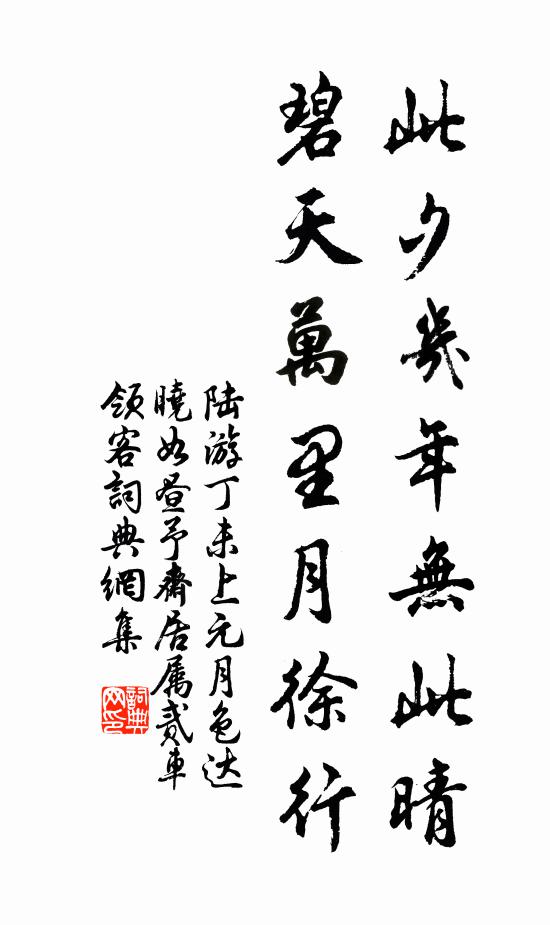 此夕幾年無此晴
碧天萬里月徐行
陆游丁未上元月色达
曉如晝予齋居属貳車
領客詞典網集
詞典
网印